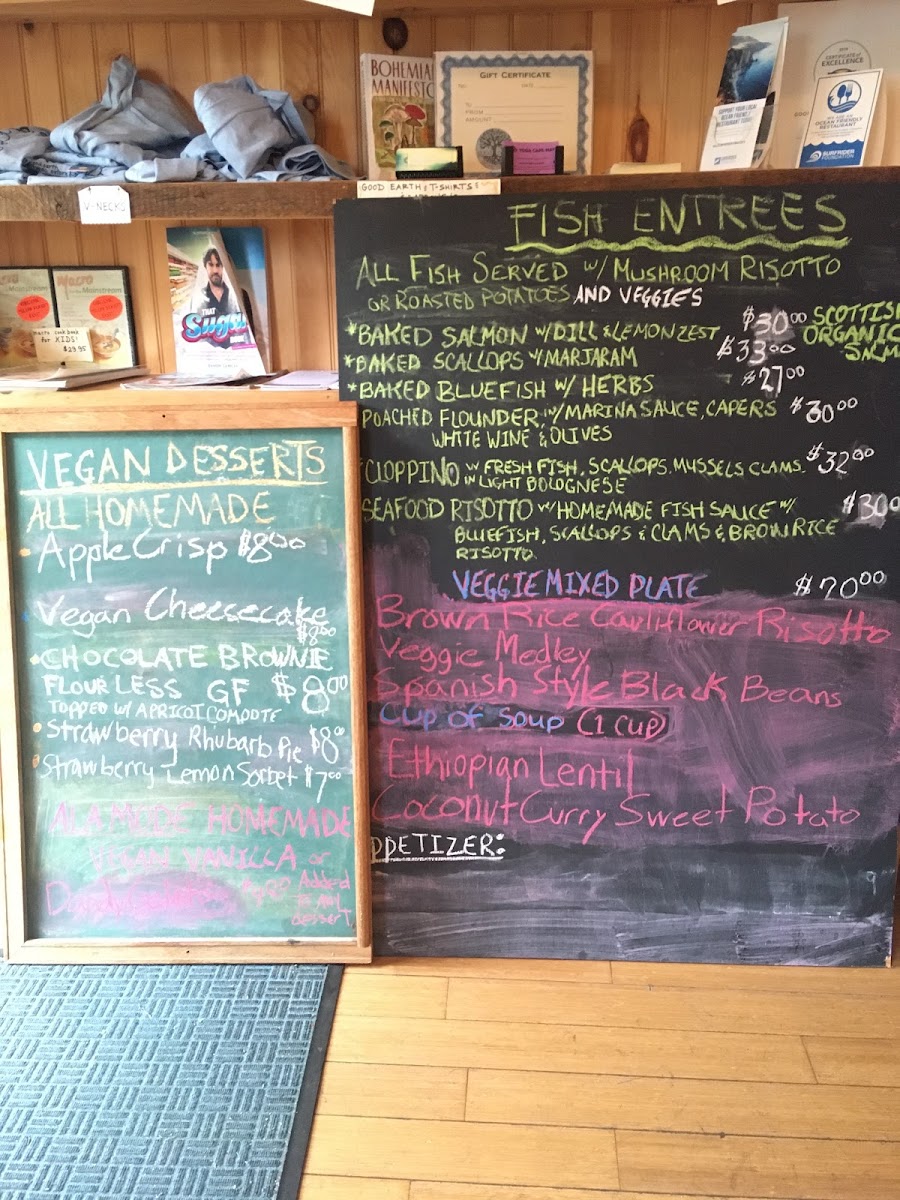 BOHEMIAN
MANIFESTO
GIFT CERTIFICATE
TO
FROM
AMOUNT
SUPPORT YOUR LOCAL
OCEAN FRIENDLY
RESTAURANTS
CERTIFICATE of
EXCELLENCE
WE ARE AN
OCEAN FRIENDLY
RESTAURANT
SURFRIDER
FOUNDATION
V-NECKS
GOOD EARTH T-SHIRTS
Macro
Mainstream
Macro
Mainstream
macro cookbook
for KIDS!
$29.95
THAT
Sugar
FISH ENTREES
ALL FISH SERVED W/ MUSHROOM RISOTTO
OR ROASTED POTATOES AND VEGGIES
*BAKED SALMON W/DILL & LEMON ZEST $30.00 SCOTTISH
ORGANIC
*BAKED SCALLOPS W/MARJARAM $33.00
*BAKED BLUEFISH W/ HERBS $27.00
POACHED FLOUNDER, W/MARINA SAUCE, CAPERS $30.00
WHITE WINE & OLIVES
CIOPPINO W FRESH FISH, SCALLOPS, MUSSELS CLAMS $32.00
IN LIGHT BOLOGNESE
SEAFOOD RISOTTO W/HOMEMADE FISH SAUCE W/ $30.0
BLUEFISH, SCALLOPS & CLAMS & BROWN RICE
RISOTTO
VEGGIE MIXED PLATE $20.00
Brown Rice Cauliflower Risotto
Veggie Medley
Spanish Style Black Beans
Cup of Soup (1 cup)
Ethiopian Lentil
Coconut Curry Sweet Potato
PPETIZER:
VEGAN DESSERTS
ALL HOMEMADE
Apple Crisp $8.00
Vegan Cheesecake
$8.00
CHOCOLATE BROWNIE
FLOURLESS GF $8.00
TOPPED W/ APRICOT COMPOTE
Strawberry Rhubarb Pie $8.00
Strawberry Lemon Sorbet $7.00
ALA MODE HOMEMADE
VEGAN VANILLA or
Added
to ANY
dessert